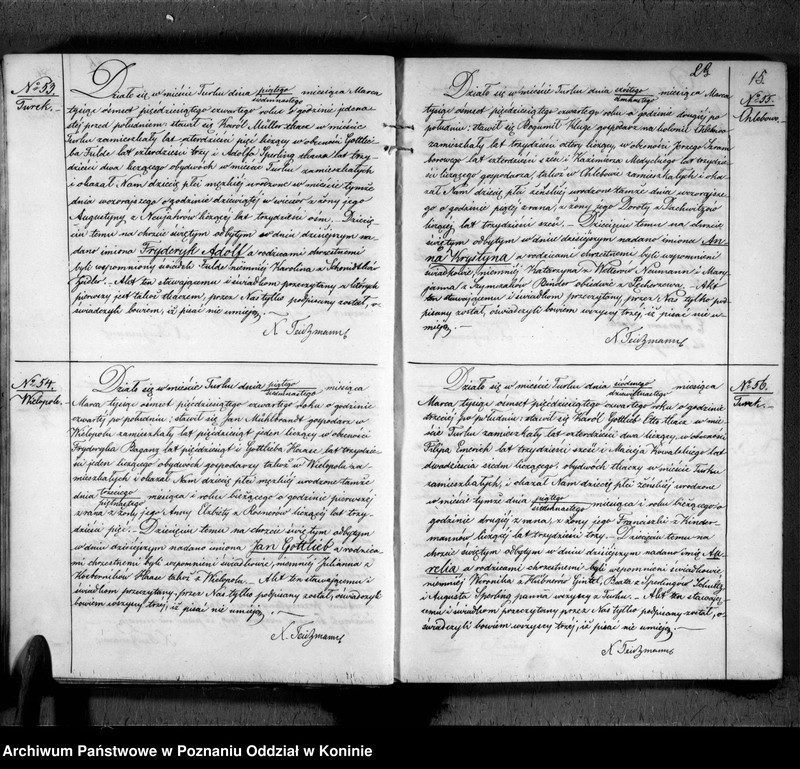 No 53.
Turek.
Działo się w mieście Turku dnia piątego/siedmnastego miesiąca Marca
tysiąc ośmset pięćdziesiątego czwartego roku o godzinie jedena-
stej przed południem stawił się Karol Müller tkacz w mieście
Turku zamieszkały lat czterdzieści pięć liczący w obecności Gottlie-
ba Fulde lat czterdzieści trzy i Adolfa Sperling tkacza lat trzy-
dzieści dwa liczącego obydwóch w mieście Turku zamieszkałych
i okazał Nam dziecię płci męzkiej urodzone w mieście tymże
dnia wczorajszego o godzinie dziewiątej w wieczór z żony jego
Augustyny z Neujahrów liczącej lat trzydzieści ośm. Dziecię-
ciu temu na chrzcie świętym odbytym w dniu dzisiejszym na-
dano imiona Fryderyk Adolf a rodzicami chrzestnemi
byli wspomniony świadek Fulde niemniej Karolina z Schmidtków
Akt ten stawającemu i świadkom przeczytany z których
pierwszy jest także tkaczem, przez Nas tylko podpisany został, o-
świadczyli bowiem, iż pisać nie umieją.
N. Teichmann
No 54.
Wielopole.
Działo się w mieście Turku dnia piątego/siedmnastego miesiąca
Marca tysiąc ośmset pięćdziesiątego czwartego roku o godzinie
czwartej po południu, stawił się Jan Mühlbrandt gospodarz w
Wielopolu zamieszkały lat pięćdziesiąt jeden liczący w obecności
Fryderyka Paganz lat pięćdziesiąt i Gottlieba Haase lat trzydzie-
ści jeden liczącego obydwóch gospodarzy także w Wielopolu za-
mieszkałych i okazał Nam dziecię płci męzkiej urodzone tamże
dnia trzeciego/piętnastego miesiąca i roku bieżącego o godzinie pierwszej
z rana z żony jego Anny Elżbiety z Rosnerów liczącej lat trzy-
dzieści pięć. Dziecięciu temu na chrzcie świętym odbytym
w dniu dzisiejszym nadano imiona Jan Gottlieb a rodzica-
mi chrzestnemi byli wspomnieni świadkowie, niemniej Julianna z
Haase także z Wielopola. Akt ten stawającemu i
świadkom przeczytany, przez Nas tylko podpisany został, oświadczyli
bowiem wszyscy trzej, iż pisać nie umieją.
N. Teichmann
15.
No 55.
Chlebowo.
Działo się w mieście Turku dnia szóstego/ośmnastego miesiąca Marca
tysiąc ośmset pięćdziesiątego czwartego roku o godzinie drugiej po
południu, stawił się Bogumił Kluge gospodarz na kolonii Chlebowo
zamieszkały lat trzydzieści cztery liczący, w obecności Jerzego Szam-
borowskiego lat czterdzieści sześć i Kazimierza Medyckiego lat trzydzie-
ści liczącego gospodarzy, także w Chlebowie zamieszkałych i oka-
zał Nam dziecię płci żeńskiej urodzone tamże dnia wczorajsze-
go o godzinie piątej z rana, z żony jego Doroty z Pachwitzów
liczącej lat trzydzieści sześć. Dziecięciu temu na chrzcie
świętym odbytym w dniu dzisiejszym nadano imiona An-
na Krystyna a rodzicami chrzestnemi byli wspomnieni
świadkowie, niemniej Katarzyna z Neumann i Mary-
janna z Szymczaków Binder obiedwie z Żechorzewa. Akt
ten stawającemu i świadkom przeczytany, przez Nas tylko pod-
pisany został, oświadczyli bowiem wszyscy trzej, iż pisać nie u-
mieją.
N. Teichmann
No 56.
Turek.
Działo się w mieście Turku dnia siódmego/dziewiętnastego miesiąca
Marca tysiąc ośmset pięćdziesiątego czwartego roku o godzinie
trzeciej po południu, stawił się Karol Gottlieb Otto tkacz w mie-
ście Turku zamieszkały lat czterdzieści dwa liczący, w obecności
Filipa Emerich lat trzydzieści sześć i Macieja Kowalskiego lat
dwadzieścia siedm liczącego, obydwóch tkaczy w mieście Turku
zamieszkałych, i okazał Nam dziecię płci żeńskiej urodzone
w mieście tymże dnia piątego/siedmnastego miesiąca i roku bieżącego o
godzinie drugiej z rana, z żony jego Franciszki z Kinder-
mannów liczącej lat trzydzieści trzy. Dziecięciu temu na
chrzcie świętym odbytym w dniu dzisiejszym nadano imię Au-
relia a rodzicami chrzestnemi byli wspomnieni świadkowie
niemniej Weronika z Hübnerów Gintel, Beata z Sperlingów Schultz
i Augusta Sperling panna wszyscy z Turku. Akt ten stawają-
cemu i świadkom przeczytany przez Nas tylko podpisany został, o-
świadczyli bowiem wszyscy trzej, iż pisać nie umieją.
N. Teichmann
Archiwum Państwowe w Poznaniu Oddział w Koninie